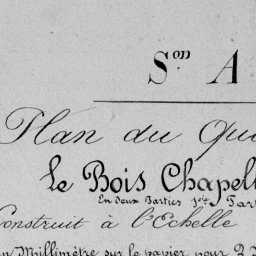 Son A
Plan du Qua
Le Bois Chapel
En deux Parties 1ère Part
Construit à l'Echelle
un Millimètre sur le papier pour 2